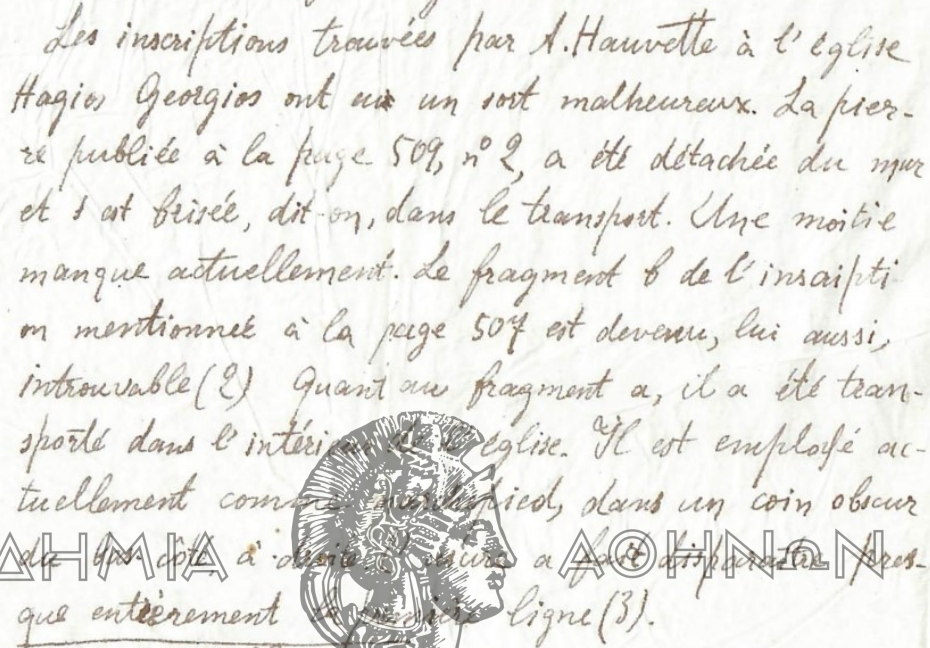 Les inscriptions trouvées par A. Hauvette à l'église
Hagios Georgios ont eu un sort malheureux. La pier-
re publiée à la page 509, nº 2, a été détachée du mur
et s'est brisée, dit-on, dans le transport. Une moitie
manque actuellement. Le fragment b de l'inscripti-
on mentionnée à la page 507 est devenu, lui aussi,
introuvable (2) Quant au fragment a, il a été tran-
sporté dans l'intérieur de l'église. Il est employé ac-
tuellement comme marchepied, dans un coin obscur
du bas côté à droite. L'usure a fait disparaître pres-
que entièrement la première ligne (3).
ΔΗΜΙΑ ΑΘΗΝΩΝ